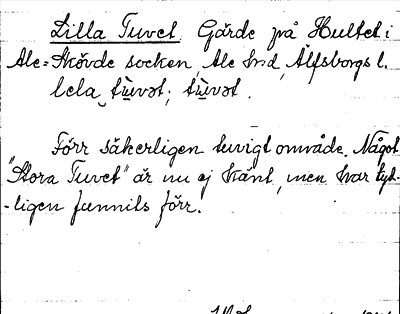 Lilla Tuvet. Gärde på Hultet i
Ale-Skövde socken, Ale hrd, Älfsborgs l.
lela tùvət; tùvət.
Förr säkerligen tuvigt område. Något
"Stora Tuvet" är nu ej känt, men har tyd-
-ligen funnits förr.